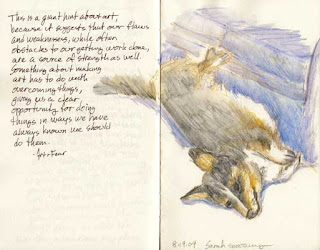 This is a giant hint about art,
because it suggests that our flaws
and weaknesses, while often
obstacles to our getting work done,
are a source of strength as well.
Something about making
art has to do with
overcoming things,
giving us a clear
opportunity for doing
things in ways we have
always known we should
do them.
-Art + Fear
8.19.09 Sarah